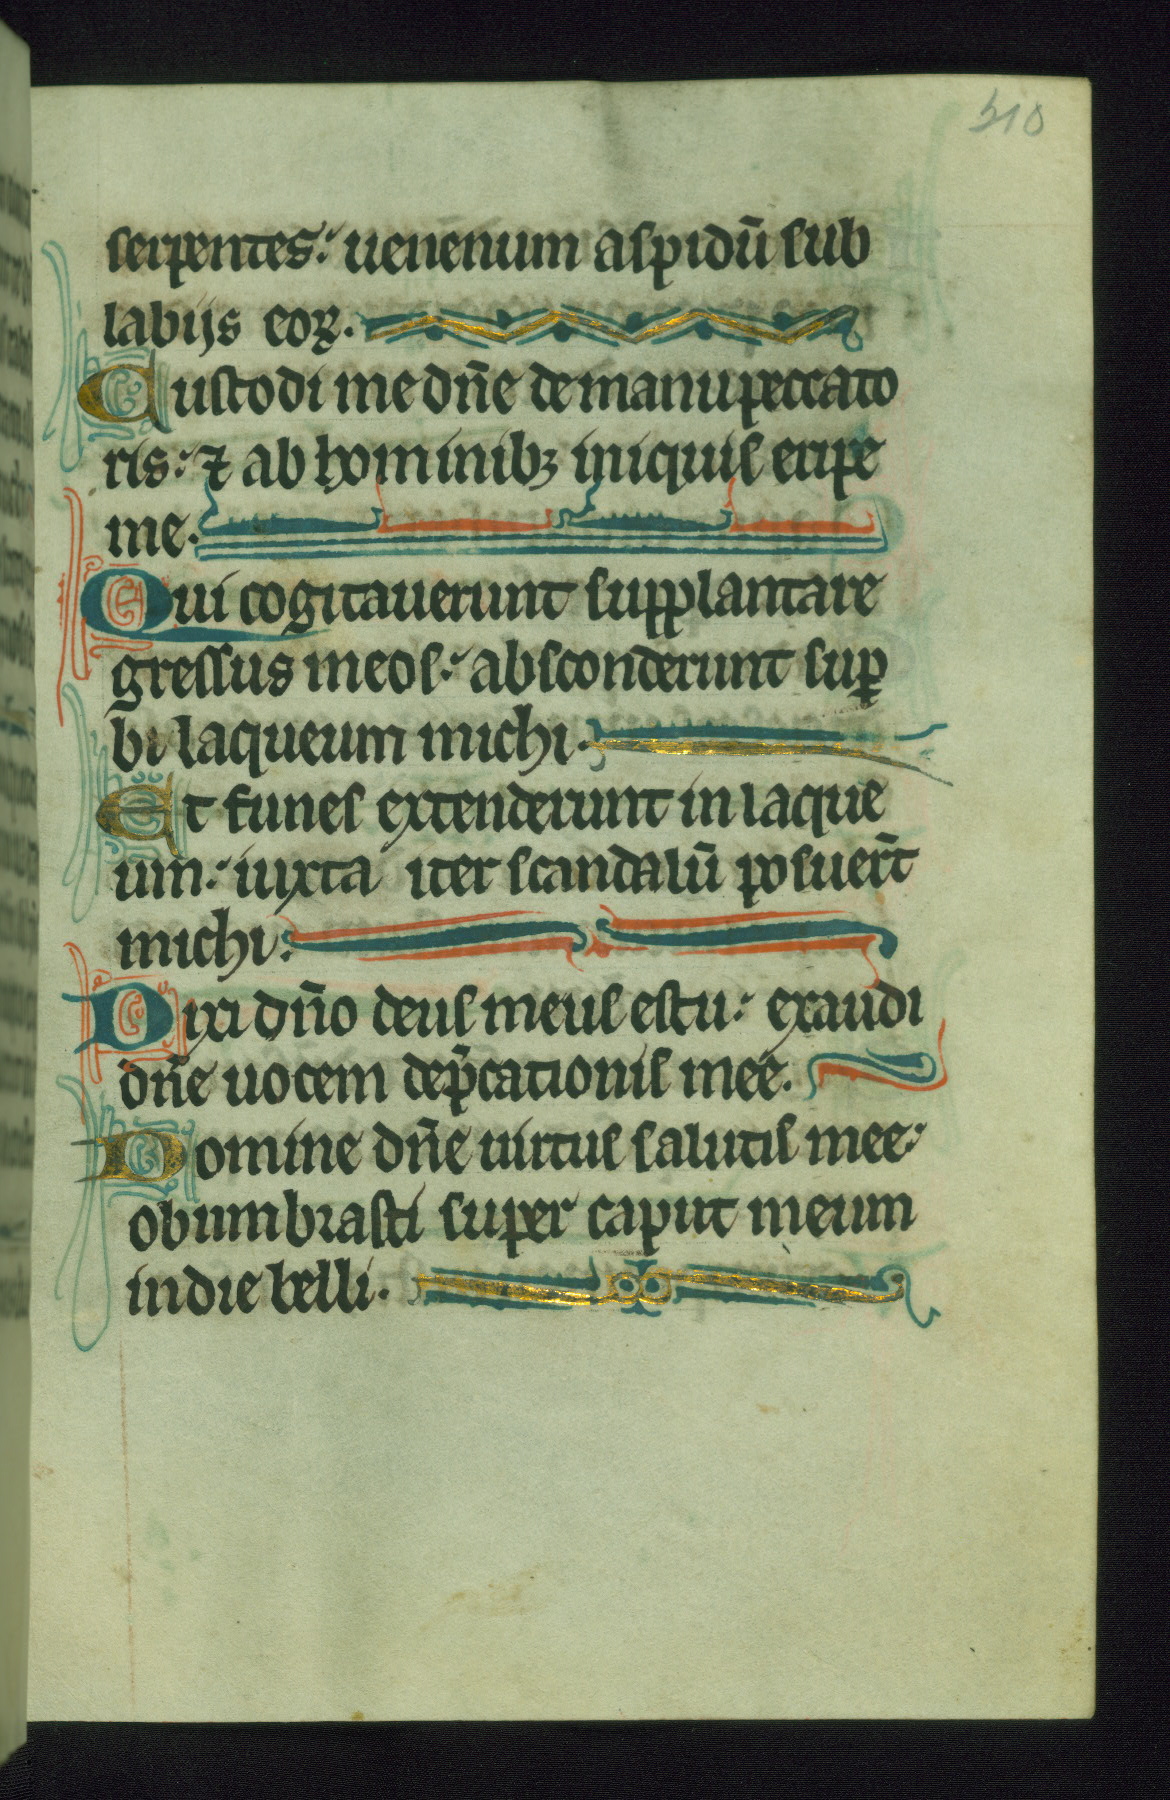 210
serpentes: uenenum aspidū sub
labijs eoꝝ.
Custodi me dn̄e de manu peccato
ris: ⁊ ab hominibꝫ iniquis eripe
me.
Qui cogitauerunt supplantare
gressus meos: absconderunt suꝑ
bi laqueum michi.
Et funes extenderunt in laque
um: iuxta iter scandalū posuer̄t
michi.
Dixi dn̄o deus meus es tu: exaudi
dn̄e uocem dep̄cationis mee.
Domine dn̄e uirtus salutis mee:
obumbrasti super caput meum
in die belli.